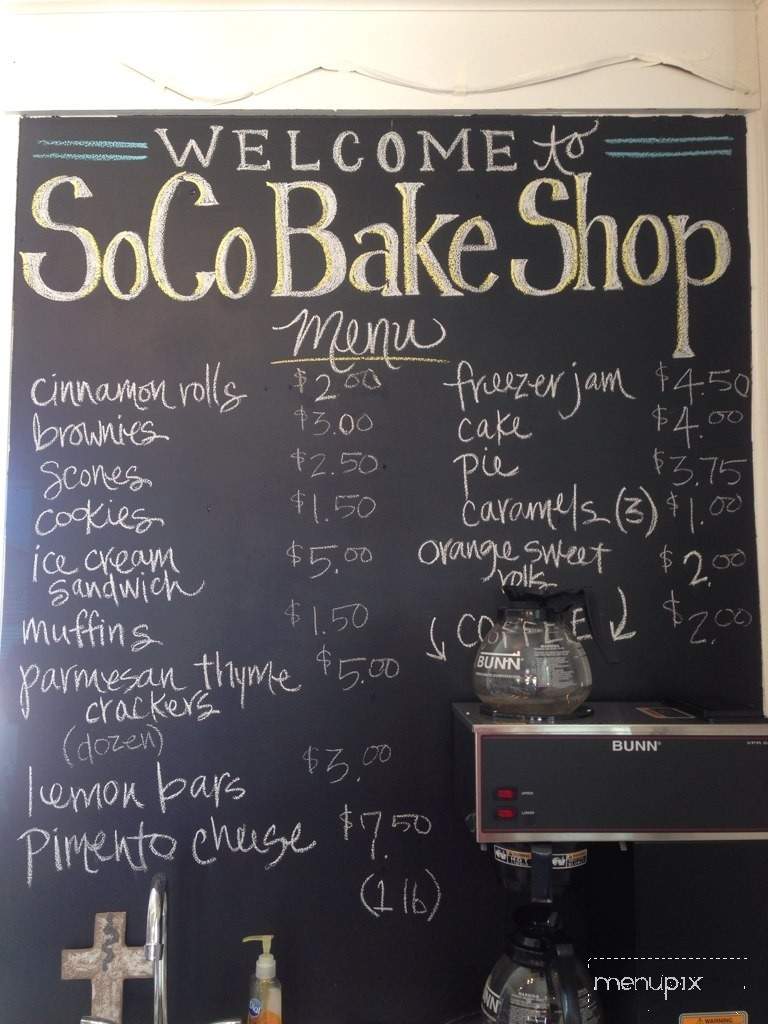 WELCOME to
SoCo Bake Shop
Menu
cinnamon rolls $2.00
brownies $3.00
scones $2.50
cookies $1.50
ice cream $5.00
sandwich
muffins $1.50
parmesan thyme $5.00
crackers
(dozen)
lemon bars $3.00
pimento cheese $7.50
(1 lb)
freezer jam $4.50
cake $4.00
pie $3.75
caramels (3) $1.00
orange sweet $2.00
rolls
COFFEE $2.00
BUNN
BUNN
BUNN
WARNING
menupix